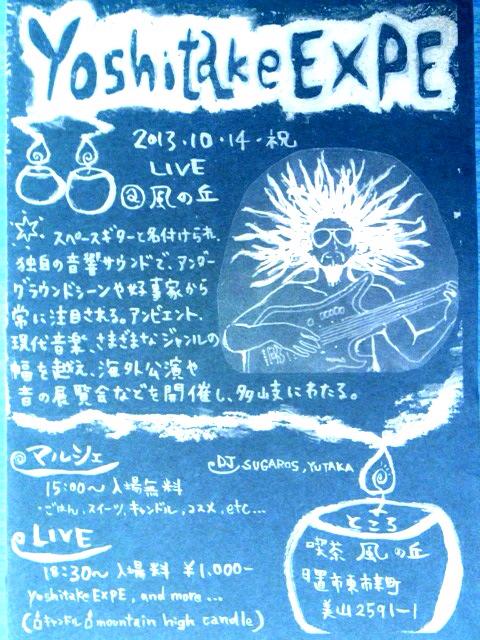 Yoshitake EXPE
2013.10.14.祝
LIVE
@風の丘
スペースギターと名付けられ、
独自の音響サウンドで、アンダー
グラウンドシーンや好事家から
常に注目される。アンビエント、
現代音楽、さまざまなジャンルの
幅を越え、海外公演や
音の展覧会などを開催し、多岐にわたる。
@マルシェ
15:00〜入場無料
・ごはん、スイーツ、キャンドル、コスメ、etc...
@DJ SUGAROS, YUTAKA
@LIVE
18:30〜入場料 ¥1,000-
Yoshitake EXPE, and more...
(キャンドル mountain high candle)
ところ
喫茶 風の丘
日置市東市来町
美山2591-1